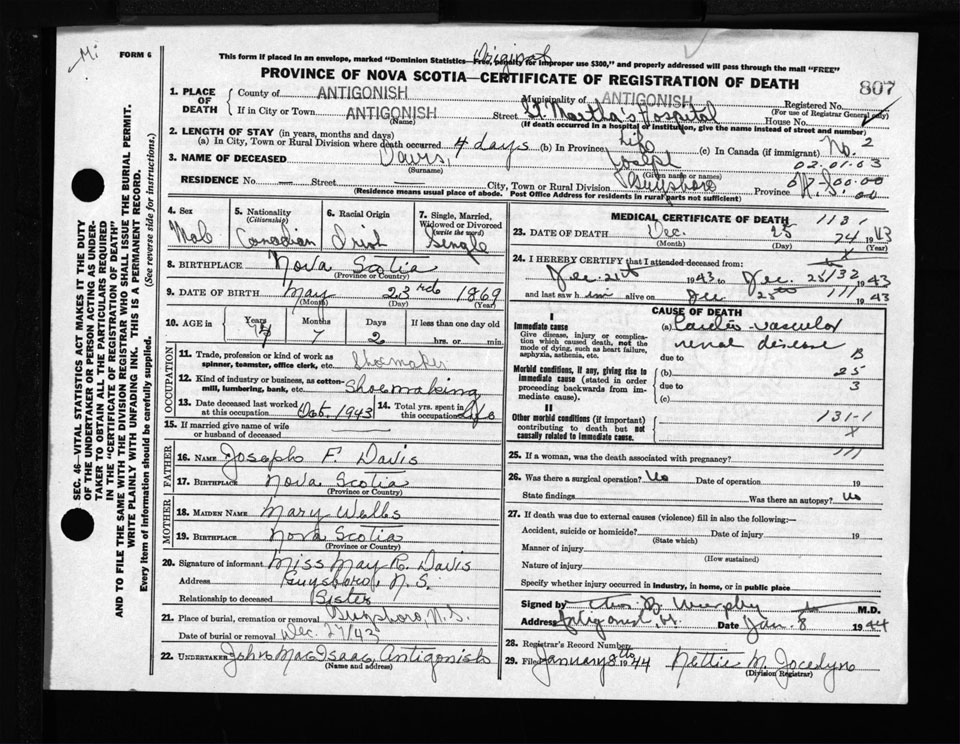 Mi
FORM 6
Original
This form if placed in an envelope, marked "Dominion Statistics—Free, penalty for improper use $300," and properly addressed will pass through the mail "FREE"
PROVINCE OF NOVA SCOTIA—CERTIFICATE OF REGISTRATION OF DEATH
807
1. PLACE OF DEATH
County of ANTIGONISH
Municipality of ANTIGONISH
Registered No.
(For use of Registrar General only)
If in City or Town ANTIGONISH
(Name)
Street St. Martha's Hospital
House No.
(If death occurred in a hospital or institution, give the name instead of street and number)
2. LENGTH OF STAY (in years, months and days)
(a) In City, Town or Rural Division where death occurred 4 days (b) In Province Life (c) In Canada (if immigrant) No. 2
02.01.03
3. NAME OF DECEASED Davis, Joseph
(Surname) (Given name or names)
RESIDENCE No. — Street — City, Town or Rural Division Guysboro Province N.S.
(Residence means usual place of abode. Post Office Address for residents in rural parts not sufficient)
4. Sex
Male
5. Nationality
(Citizenship)
Canadian
6. Racial Origin
Irish
7. Single, Married, Widowed or Divorced
(write the word)
Single
8. BIRTHPLACE Nova Scotia
(Province or Country)
9. DATE OF BIRTH May 23rd 1869
(Month) (Day) (Year)
10. AGE in
Years Months Days If less than one day old
7 2 hrs. or min.
OCCUPATION
11. Trade, profession or kind of work as spinner, teamster, office clerk, etc. Shoemaker
12. Kind of industry or business, as cotton-mill, lumbering, bank, etc. Shoemaking
13. Date deceased last worked at this occupation Oct. 1943
14. Total yrs. spent in this occupation Life
15. If married give name of wife or husband of deceased
FATHER
16. NAME Joseph F. Davis
17. BIRTHPLACE Nova Scotia
(Province or Country)
MOTHER
18. MAIDEN NAME Mary Wells
19. BIRTHPLACE Nova Scotia
(Province or Country)
20. Signature of informant Miss May C. Davis
Address Guysboro, N.S.
Relationship to deceased Sister
21. Place of burial, cremation or removal Guysboro N.S.
Date of burial or removal Dec. 27/43
22. UNDERTAKER John MacIsaac, Antigonish
(Name and address)
MEDICAL CERTIFICATE OF DEATH 1131
23. DATE OF DEATH Dec. 25 1943
(Month) (Day) (Year)
24. I HEREBY CERTIFY that I attended deceased from:
Dec. 21st 1943 Dec 25 1943
and last saw him alive on Dec 25th 1943
CAUSE OF DEATH
I
Immediate cause
Give disease, injury or complication which caused death, not the mode of dying, such as heart failure, asphyxia, asthenia, etc.
(a) Cardio-vascular renal disease
due to B
Morbid conditions, if any, giving rise to immediate cause (stated in order proceeding backwards from immediate cause).
(b) 25
due to 3
(c)
II
Other morbid conditions (if important) contributing to death but not causally related to immediate cause.
131-1
X
25. If a woman, was the death associated with pregnancy?
26. Was there a surgical operation? No Date of operation 19
State findings Was there an autopsy? No
27. If death was due to external causes (violence) fill in also the following:—
Accident, suicide or homicide? Date of injury 19
(State which)
Manner of injury
(How sustained)
Nature of injury
Specify whether injury occurred in industry, in home, or in public place
Signed by Murphy M.D.
Address Antigonish Date Jan. 8 1944
28. Registrar's Record Number
29. Filed January 8th 1944 Nettie M. Jocelyn
(Division Registrar)
SEC. 46—VITAL STATISTICS ACT MAKES IT THE DUTY
OF THE UNDERTAKER OR PERSON ACTING AS UNDER-
TAKER TO OBTAIN ALL THE PARTICULARS REQUIRED
IN THE "CERTIFICATE OF REGISTRATION OF DEATH"
AND TO FILE THE SAME WITH THE DIVISION REGISTRAR WHO SHALL ISSUE THE BURIAL PERMIT.
WRITE PLAINLY WITH UNFADING INK. THIS IS A PERMANENT RECORD.
Every item of information should be carefully supplied.
(See reverse side for instructions.)